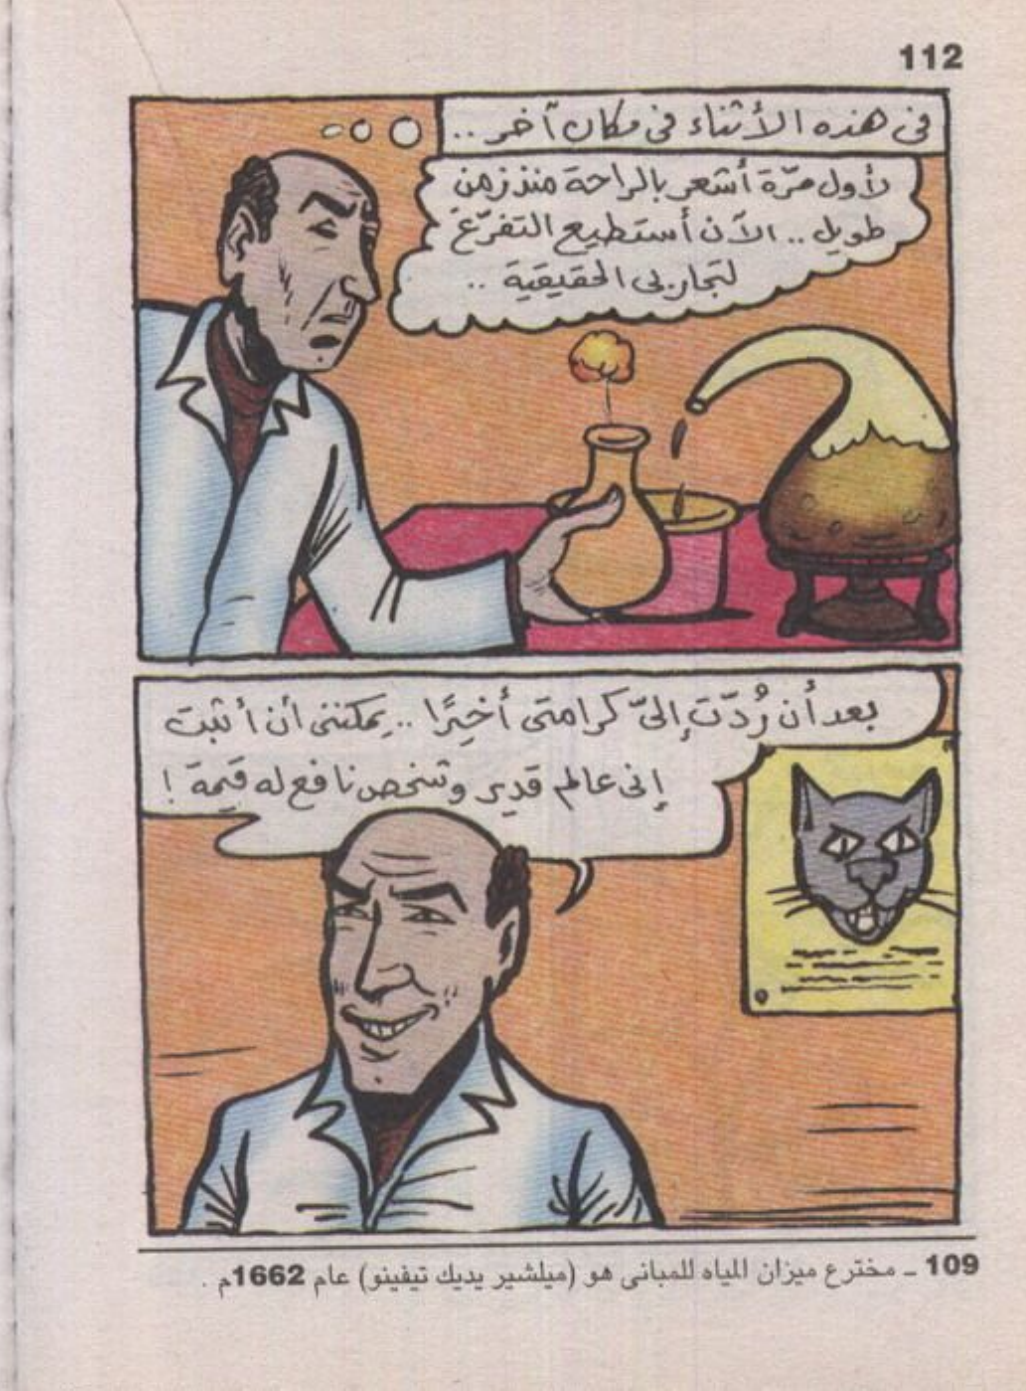 112
فى هذه الأثناء فى مكان آخر ..
لأول مرّة أشعر بالراحة منذ زمن
طويل .. الآن أستطيع التفرّغ
لتجاربى الحقيقية ..
بعد أن رُدّت إلىّ كرامتى أخيرًا .. يمكننى أن أثبت
إنى عالم قدير وشخص نافع له قيمة !
109 ـ مخترع ميزان المياه للمبانى هو (ميلشير يديك تيفينو) عام 1662م .